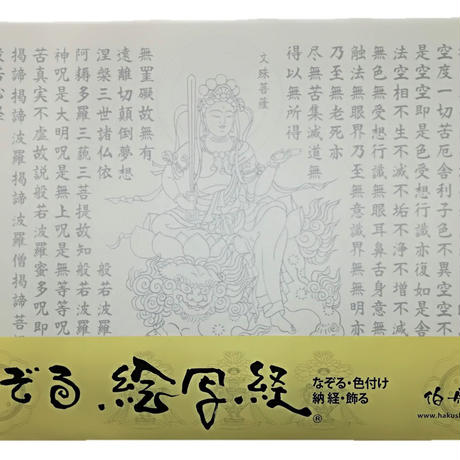 空度一切苦厄舎利子色不異空空
是空空即是色受想行識亦復如是舎
法空相不生不滅不垢不浄不増不減
無色無受想行識無眼耳鼻舌身意
触法無眼界乃至無意識界無無明亦
乃至無老死亦
尽無苦集滅道無
得以無所得
文殊菩薩
無罣礙故無有
遠離切顛倒夢想
涅槃三世諸仏依
般若波羅
阿耨多羅三藐三菩提故知般若波羅
神呪是大明呪是無上呪是無等等呪
苦真実不虚故説般若波羅蜜多呪即
掲諦掲諦波羅掲諦波羅僧掲諦菩
般若心経
ぞる 絵写経®
なぞる・色付け
納経・飾る
伯
www.hakush